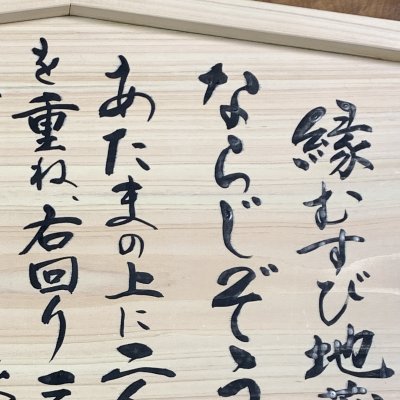 縁むすび地
ならじぞう
あたまの上に二
を重ね、右回り